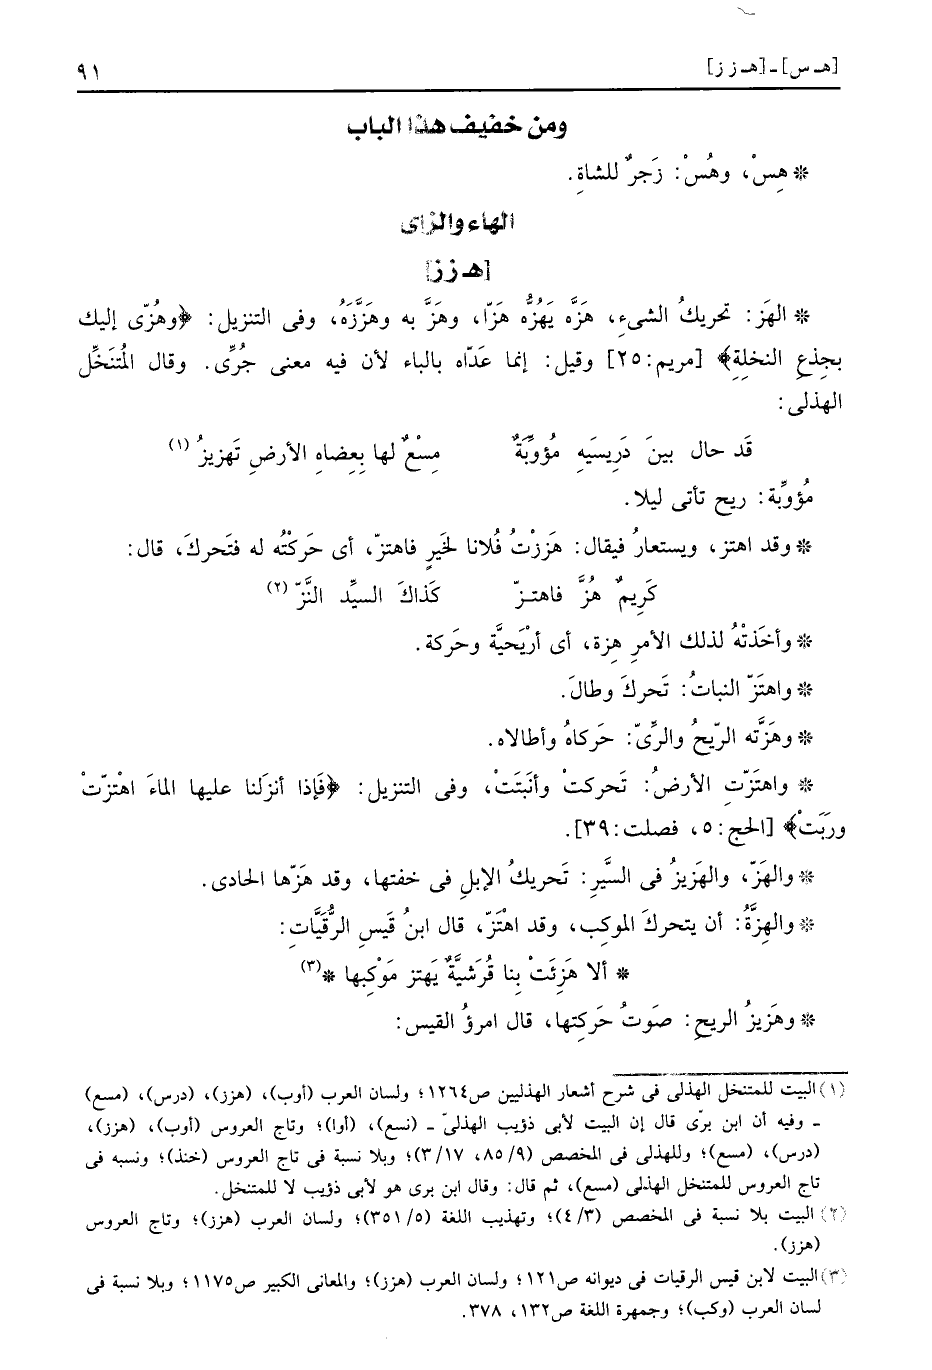 [هـ س] ـ [هـ ز ز]
٩١
ومن خفيف هذا الباب
* هِسْ، وهُسْ: زَجرٌ للشاةِ.
الهاء والزاى
[هـ ز ز]
* الهَز: تحريكُ الشىءِ، هَزَّه يَهُزُّه هَزّا، وهَزَّ به وهَزَّزَهُ، وفى التنزيل: ﴿وهُزّى إليك
بجِذعِ النخلةِ﴾ [مريم: ٢٥] وقيل: إنما عَدّاه بالباء لأن فيه معنى جُرِّى. وقال المُتَنَخِّل
الهذلى:
قَد حال بينَ دَرِيسَيهِ مُؤَوِّبَةٌ مِسْعٌ لها بِعِضاهِ الأرضِ تَهزيزُ (١)
مُؤَوِّبة: ريح تأتى ليلا.
* وقد اهتز، ويستعارُ فيقال: هَززْتُ فُلانا لخَيرٍ فاهتزّ، أى حَركْتُه له فتَحركَ، قال:
كَرِيمٌ هُزَّ فاهتـزّ كَذاكَ السيِّد النَّزّ (٢)
* وأخَذتْهُ لذلك الأمرِ هِزة، أى أرْيَحيَّة وحَركة.
* واهتَزّ النباتُ: تَحركَ وطالَ.
* وهَزَّته الرّيحُ والرِّىّ: حَركاهُ وأطالاه.
* واهتَزّتِ الأرضُ: تَحركتْ وأنبَتَتْ، وفى التنزيل: ﴿فَإذا أنزَلنا عليها الماءَ اهْتزّتْ
ورَبَتْ﴾ [الحج: ٥، فصلت: ٣٩].
* والهزّ، والهَزِيزُ فى السَّيرِ: تَحريكُ الإبلِ فى خفتها، وقد هَزّها الحادى.
* والهِزَّةُ: أن يتحركَ الموكب، وقد اهْتَزّ، قال ابنُ قَيسِ الرُّقَيَّاتِ:
* ألا هَزِئَتْ بنا قُرشيَّةٌ يَهتز مَوْكبها *(٣)
* وهَزيزُ الريحِ: صَوتُ حَركتِها، قال امرؤُ القيس:
(١) البيت للمتنخل الهذلى فى شرح أشعار الهذليين ص١٢٦٤؛ ولسان العرب (أوب)، (هزز)، (درس)، (مسع)
ـ وفيه أن ابن برّى قال إن البيت لأبى ذؤيب الهذلىّ ـ (نسع)، (أوا)؛ وتاج العروس (أوب)، (هزز)،
(درس)، (مسع)؛ وللهذلى فى المخصص (٩/ ٨٥، ١٧/ ٣)؛ وبلا نسبة فى تاج العروس (خنذ)؛ ونسبه فى
تاج العروس للمتنخل الهذلى (مسع)، ثم قال: وقال ابن برى هو لأبى ذؤيب لا للمتنخل.
(٢) البيت بلا نسبة فى المخصص (٣/ ٤)؛ وتهذيب اللغة (٥/ ٣٥١)؛ ولسان العرب (هزز)؛ وتاج العروس
(هزز).
(٣) البيت لابن قيس الرقيات فى ديوانه ص١٢١؛ ولسان العرب (هزز)؛ والمعانى الكبير ص١١٧٥؛ وبلا نسبة فى
لسان العرب (وكب)؛ وجمهرة اللغة ص١٣٢، ٣٧٨.